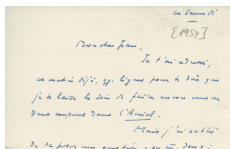 ce Samedi
[1954]
Mon cher Jean,
Je t'ai adressé,
ce matin déjà, qq. lignes pour te dire que
je te laisse le soin de faire encore une ou
deux coupures dans l'Amiel.
Mais j'ai oublié
de te poser une question, ou